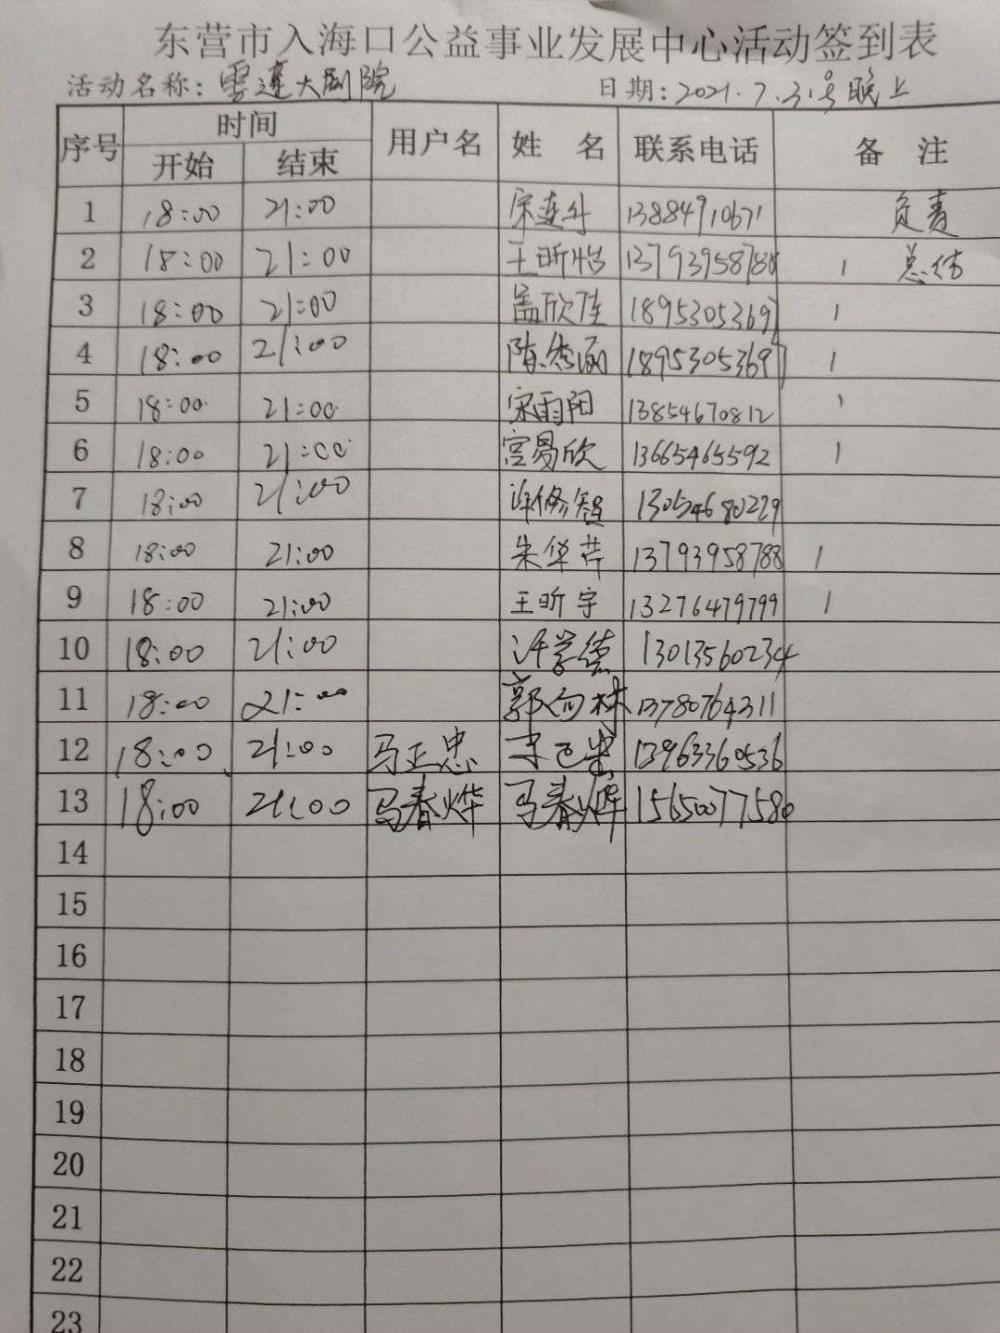 东营市入海口公益事业发展中心活动签到表
活动名称：雪莲大剧院 日期：2021.7.31号晚上
序号 时间 用户名 姓 名 联系电话 备 注
开始 结束
1 18:00 21:00 宋连升 13884910671 负责
2 18:00 21:00 王昕怡 13793958788 1 总结
3 18:00 21:00 孟欣佳 18953053697 1
4 18:00 21:00 陈秀涵 18953053697 1
5 18:00 21:00 宋雨阳 13854670812 1
6 18:00 21:00 宫易欣 13665465592 1
7 18:00 21:00 许修智 13054680229
8 18:00 21:00 朱华芹 13793958788 1
9 18:00 21:00 王昕宇 13276479799 1
10 18:00 21:00 许学德 13013560234
11 18:00 21:00 郭向林 13780764311
12 18:00 21:00 马正忠 13963360536
13 18:00 21:00 马春烨 马春烨 15650077580
14
15
16
17
18
19
20
21
22
23